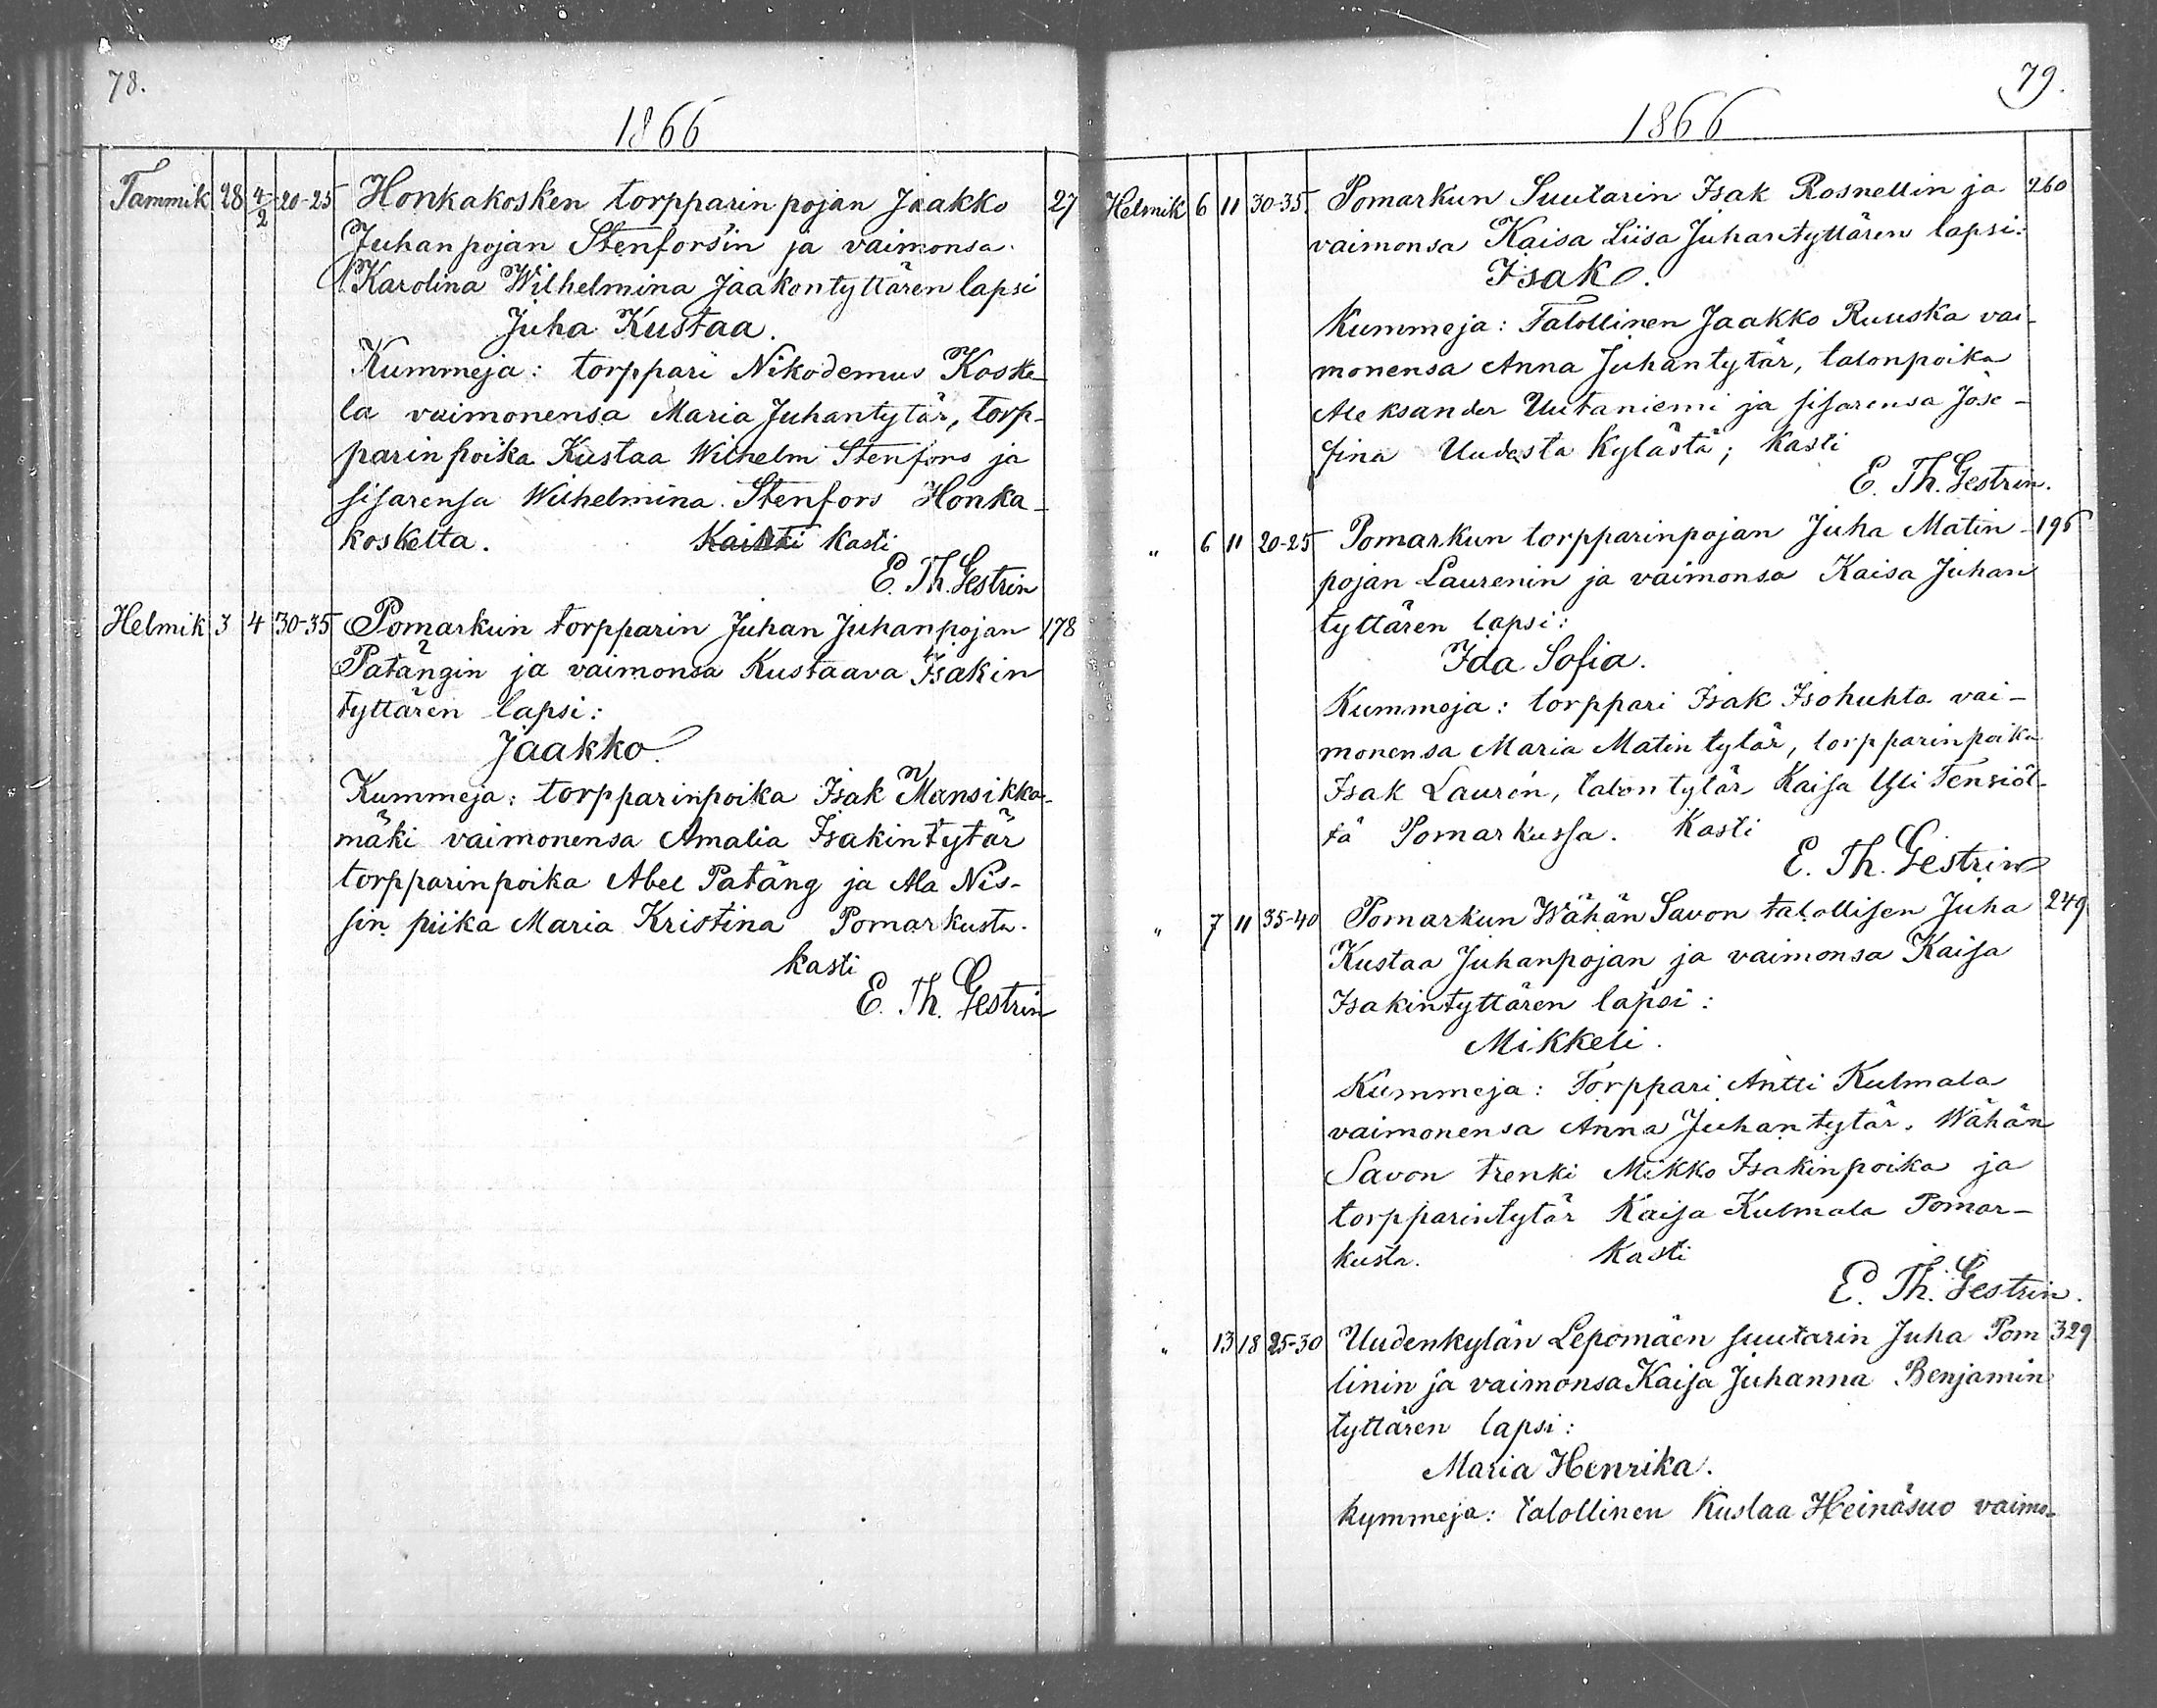 78.
1866
Tammik 28 4/2 20-25 Honkakosken torpparin pojan Jaakko 27
Juhanpojan Stenfors'in ja vaimonsa
Karolina Wilhelmina Jaakontyttären lapsi
Juha Kustaa.
Kummeja: torppari Nikodemus Koske-
la vaimonensa Maria Juhantytär, torp-
parinpoika Kustaa Wilhelm Stenfors ja
sisarensa Wilhelmina Stenfors Honka-
koskelta. kasti
E. Th. Gestrin
Helmik 3 4 30-35 Pomarkun torpparin Juhan Juhanpojan 178
Patängin ja vaimonsa Kustaava Isakin
tyttären lapsi:
Jaakko
Kummeja: torpparinpoika Isak Mansikka-
mäki vaimonensa Amalia Isakintytär
torpparinpoika Abel Patäng ja Ala Nis-
sin piika Maria Kristina Pomarkusta.
kasti
E. Th. Gestrin
79.
1866
Helmik 6 11 30-35. Pomarkun Suutarin Isak Rosnellin ja 260
vaimonsa Kaisa Liisa Juhantyttären lapsi:
Isak.
Kummeja: Talollinen Jaakko Ruuska vai-
monensa Anna Juhantytär, talonpoika
Aleksander Uutaniemi ja sisarensa Jose-
fina Uudesta kylästä; kasti
E. Th. Gestrin.
" 6 11 20-25 Pomarkun torpparinpojan Juha Matin- 196
pojan Laurenin ja vaimonsa Kaisa Juhan
tyttären lapsi:
Ida Sofia.
Kummeja: torppari Isak Isohuhta vai-
monensa Maria Matintytär, torpparinpoika
Isak Laurén, talontytär Kaisa Yli Tensiöl-
tä Pomarkussa. Kasti
E. Th. Gestrin
" 7 11 35-40 Pomarkun Wähän Savon talollisen Juha 249
Kustaa Juhanpojan ja vaimonsa Kaisa
Isakintyttären lapsi:
Mikkeli.
Kummeja: Torppari Antti Kulmala
vaimonensa Anna Juhantytär, Wähän
Savon trenki Mikko Isakinpoika ja
torpparintytär Kaisa Kulmala Pomar-
kusta. kasti
E. Th. Gestrin.
" 13 18 25-30 Uudenkylän Lepomäen suutarin Juha Pom 329
linin ja vaimonsa Kaisa Juhanna Benjamin
tyttären lapsi:
Maria Henrika.
kymmeja: talollinen Kustaa Heinäsuo vaimo-